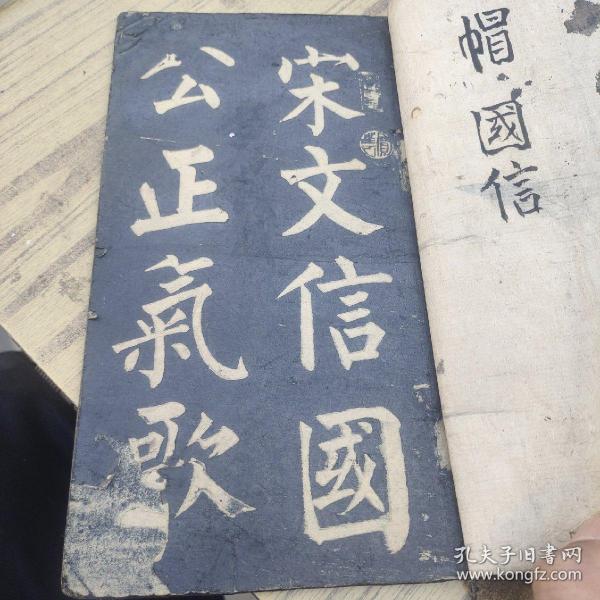 宋文信國
公正氣歌
帽國信
孔夫子旧书网
www.kongfz.com